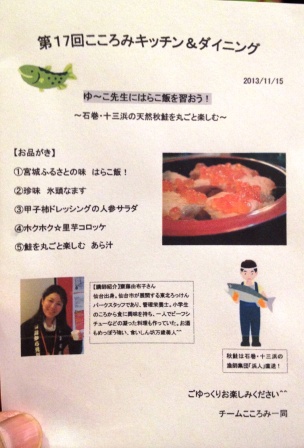 第17回こころみキッチン＆ダイニング
2013/11/15
ゆ～こ先生にはらこ飯を習おう！
～石巻・十三浜の天然秋鮭を丸ごと楽しむ～
【お品がき】
①宮城ふるさとの味　はらこ飯！
②珍味　氷頭なます
③甲子柿ドレッシングの人参サラダ
④ホクホク☆里芋コロッケ
⑤鮭を丸ごと楽しむ　あら汁
【講師紹介】齋藤由布子さん
仙台出身。仙台市が展開する東北ろっけん
パークスタッフであり、管理栄養士。小学生
のころから食に興味を持ち、一人でビーフシ
チューなどの凝った料理も作っていた。お酒
もめっぽう強い、食いしん坊万歳美人^^
秋鮭は石巻・十三浜の
漁師集団「浜人」直送！
ごゆっくりお楽しみください^^
チームこころみ一同